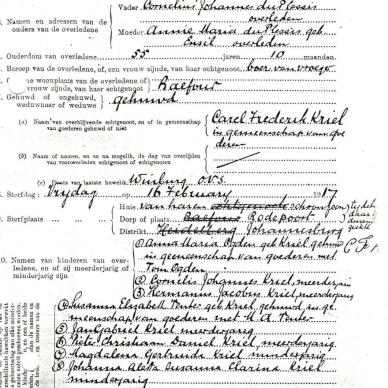 Vader Cornelius Johannes du Plessis
overleden
Namen en adressen van de
ouders van de overledene
Moeder Annie Maria du Plessis geb
Ensil overleden
Ouderdom van overledene 55 jaren 10 maanden.
Beroep van de overledene, of, een vrouw zijnde, van haar echtgenoot boer van
woonplaats van de overledene
vrouw zijnde, van haar echtgenoot Balfour
Gehuwd of ongehuwd,
weduwnaar of weduwe gehuwd
(a) Naam van overblijvende echtgenoot, en of in gemeenschap
van goederen gehuwd of niet
Carel Frederik Kriel
in gemeenschap van goe
deren
(b) Naam of namen, en zo na mogelik, de dag van overlijden
van vooroverleden echtgenoot of echtgenoten
(c) Plaats van laatste huwelik Winburg O.V.S.
Sterfdag Vrydag 16 Februarij 1917
Sterfplaats
Huis van haren echtgenoot schoonzoon
Dorp of plaats Balfour Rodepoort
Distrikt Heidelberg Johannesburg
10. Namen van kinderen van over-
ledene, en of zij meerderjarig of
minderjarig zijn
Anna Maria Ogden geb Kriel gehuwd
in gemeenschap van goederen met
Tom Ogden
Cornelis Johannes Kriel, meerderjarig
Hermanus Jacobus Kriel, meerderjarig
Susanna Elizabeth Venter geb Kriel gehuwd in ge
meenschap van goederen met H. A. Venter
Jan Gabriel Kriel meerderjarig
Pieter Christiaan Daniel Kriel, meerjarig
Magdalena Gertruida Kriel minderjarig
Johanna Aletta Susanna Clarina Kriel
minderjarig